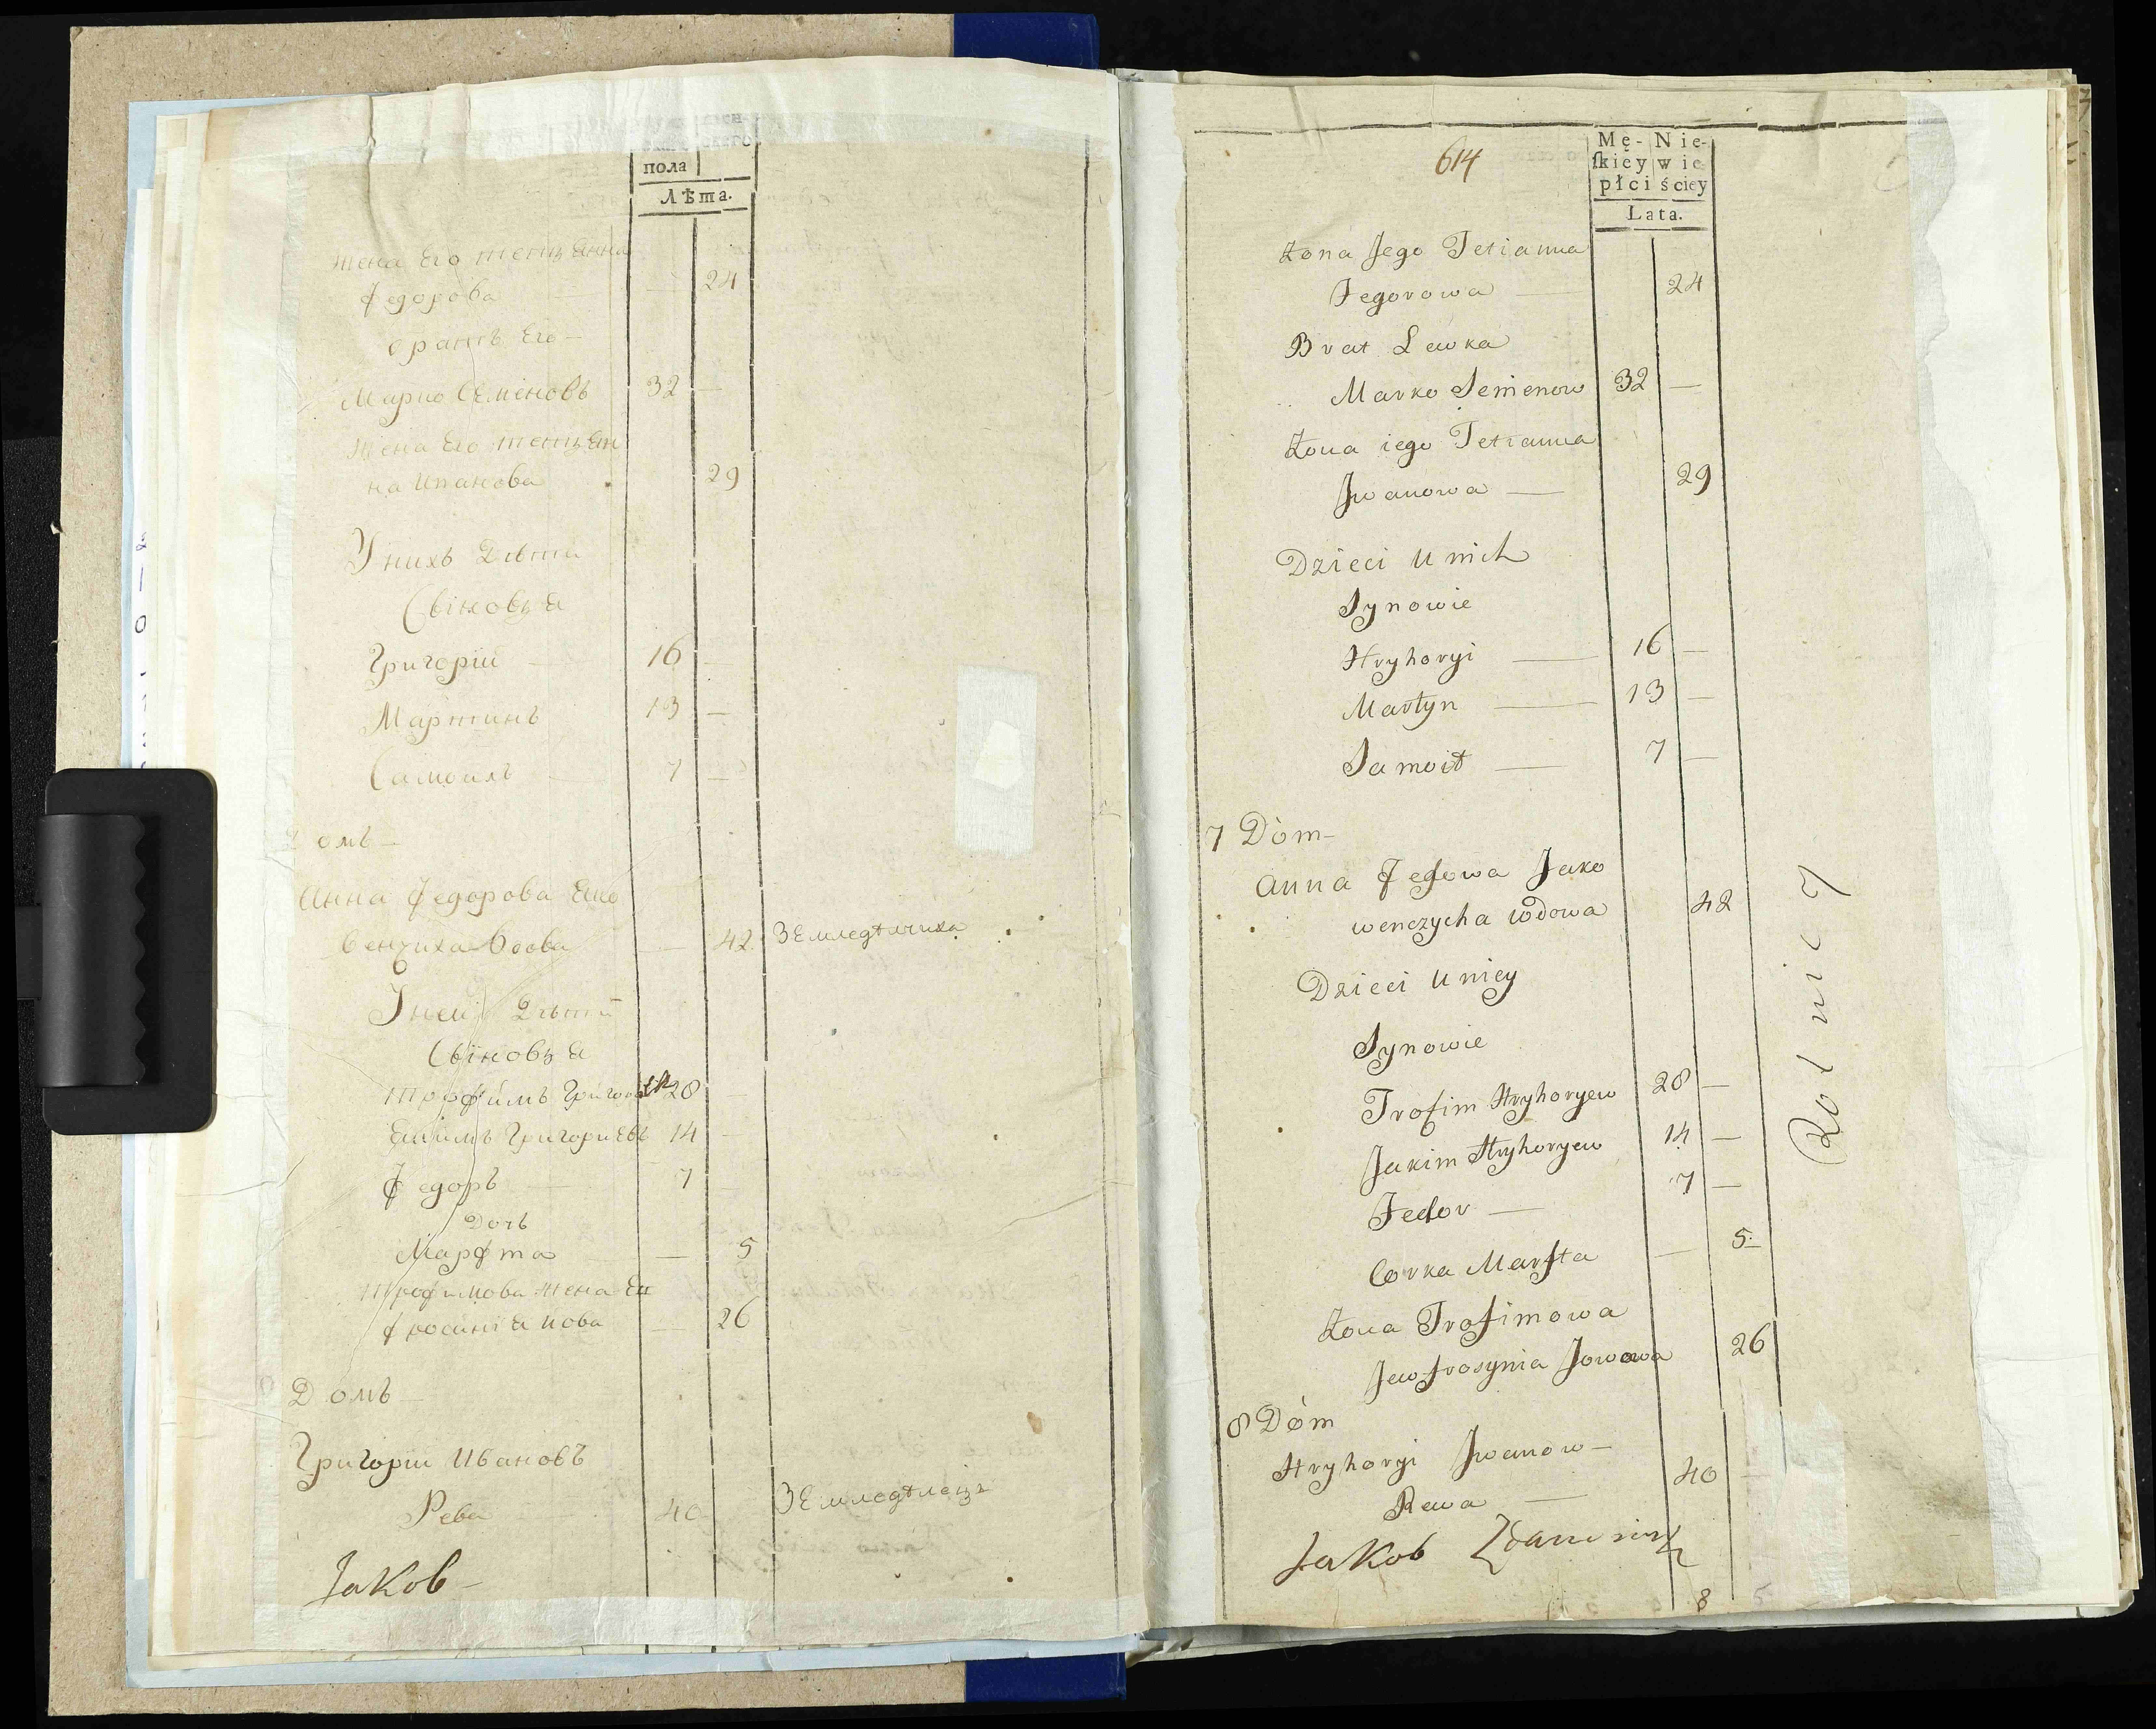 пола
Лѣта.
Жена Его тетіанна
Федорова — — 24
братъ Его —
Марко Семеновъ 32 —
Жена Его тетіан
на Иванова 29
У нихъ Дѣти
Сыновья
Григорїи — 16 —
Мартинъ 13 —
Самоилъ — 7 —
омъ —
Анна Федорова Яко
венчиха вдова — 42 Земледѣлчиха
У неи Дѣти
Сыновья
Трофимъ 28 —
Екимъ Григорьевъ 14 —
Федоръ — 7 —
Дочь
Марфта — 5
Трофимова жена Ев
фросиния Иова — 26
Домъ —
Григории Ивановъ
Рева — 40 Земледѣлецъ
Jakob —
614
Mę- Nie-
ſkiey wie
płci ściey
Lata.
Żona Jego Tetianna
Fegorowa — 24
Brat Lewka
Marko Semenow 32 —
Żona iego Tetianna
Jwanowa — 29
Dzieci u nich
Synowie
Hryhoryi — 16 —
Martyn — 13 —
Samoił — 7 —
7 Dòm —
Anna Fedowa Jako
wenczycha wdowa 42
Dzieci u niey
Synowie
Trofim Hryhoryew 28 —
Jakim Hryhoryew 14 —
Fedor — 7 —
Corka Marfta — 5 —
Żona Trofimowa
Jewfrosynia Jowowa 26
Rolnicy
8 Dóm
Hryhoryi Jwanow —
Rewa — 40
Jakob
8 5